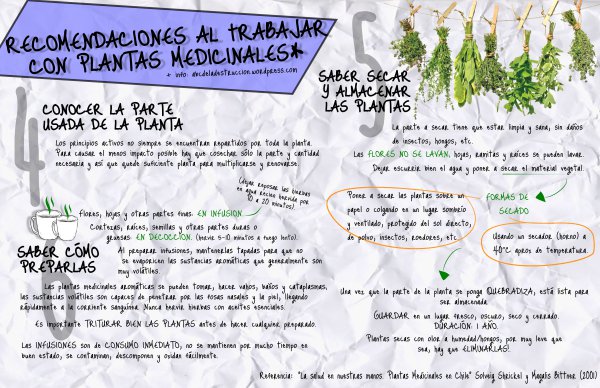 RECOMENDACIONES AL TRABAJAR
CON PLANTAS MEDICINALES*
* info: abcdeladestruccion.wordpress.com
4
CONOCER LA PARTE
USADA DE LA PLANTA
Los principios activos no siempre se encuentran repartidos por toda la planta.
Para causar el menos impacto posible hay que cosechar sólo la parte y cantidad
necesaria y así que quede suficiente planta para multiplicarse y renovarse.
(dejar reposar las hierbas
en agua recién hervida por
10 a 20 minutos)
flores, hojas y otras partes finas: EN INFUSION
Cortezas, raíces, semillas y otras partes duras o
gruesas: EN DECOCCION. (hervir 5-10 minutos a fuego lento).
6
SABER CÓMO
PREPARLAS
Al preparar infusiones, mantenerlas tapadas para que no
se evaporicen las sustancias aromáticas que generalmente son
muy volátiles.
Las plantas medicinales aromáticas se pueden tomar, hacer vahos, baños y cataplasmas,
las sustancias volátiles son capaces de penetrar por las fosas nasales y la piel, llegando
rápidamente a la corriente sanguínea. Nunca hervir hierbas con aceites esenciales.
Es importante TRITURAR BIEN LAS PLANTAS antes de hacer cualquiera preparado.
Las INFUSIONES son de CONSUMO INMEDIATO, no se mantienen por mucho tiempo en
buen estado, se contaminan, descomponen y oxidan fácilmente.
5
SABER SECAR
Y ALMACENAR
LAS PLANTAS
La parte a secar tiene que estar limpia y sana, sin daños
de insectos, hongos, etc.
Las FLORES NO SE LAVAN, hojas, ramitas y raíces se pueden lavar.
Dejar escurrir bien el agua y poner a secar el material vegetal.
Poner a secar las plantas sobre un
papel o colgando en un lugar sombrío
y ventilado, protegido del sol directo,
de polvo, insectos, roedores, etc.
FORMAS DE
SECADO
Usando un secador (horno) a
40°C aprox de temperatura.
Una vez que la parte de la planta se ponga QUEBRADIZA, está lista para
ser almacenada
GUARDAR en un lugar fresco, oscuro, seco y cerrado.
DURACIÓN: 1 AÑO.
Plantas secas con olor a humedad/hongos, por muy leve que
sea, hay que ELIMINARLAS!.
Referencia: "La salud en nuestras manos. Plantas Medicinales en Chile" Solveig Shrickel y Magalis Bittner (2001)